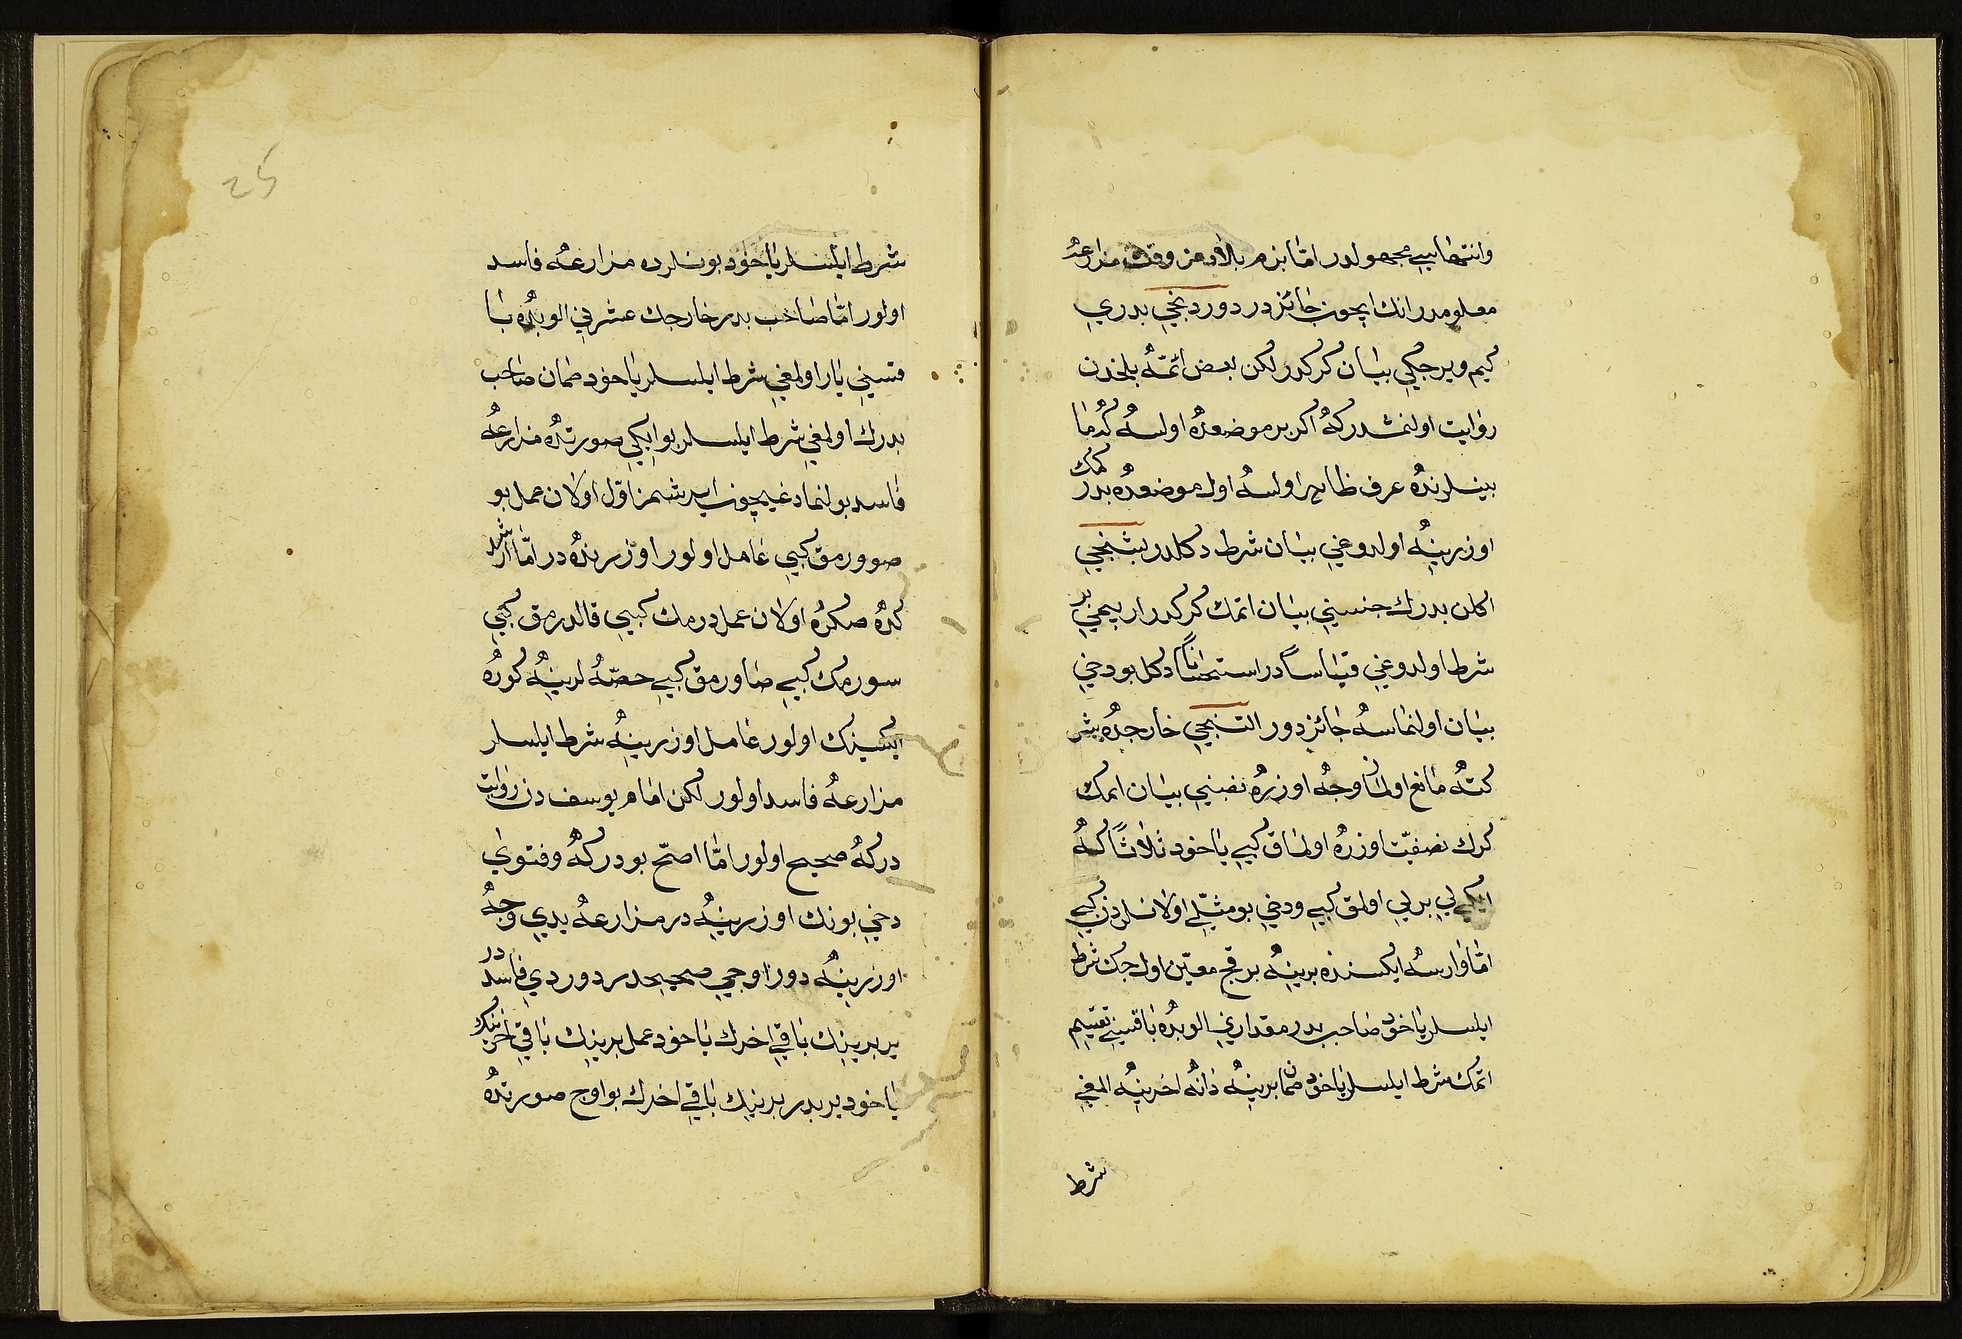 وانتهاسي مجهولدر امّا بزم بلادمزه وقت مزارعه
معلومدر انك ايچون جائز در دوردنجي بدري
كيم ويرجكي بيان كركدر لكن بعض ائمّهٔ بلخدن
روايت اولنمشدر كه اكر بر موضعده اولسه كه
بينلرنده عرف ظاهر اولسه اول موضعده بدر كمك
اوزرينه اولدوغني بيان شرط دكلدر بشنجي
اكلن بدرك جنسني بيان اتمك كركدر
شرط اولدوغي قياساً در استحساناً دكل بو دخي
بيان اولنماسه جائز در التنجي خارجده
شركته مانع اولمز وجه اوزره نصيبني بيان اتمك
كرك نصفيت اوزره اولماق كبي ياخود ثلاثاً كه
ايكيسي بري اولمق كبي ودخي بو مثللي اولانلردن كبي
امّا وارسه ايكسندن برينه بر قچ معيّن اولجك شرط
ايلسلر ياخود صاحب بدر مقداريني الوبده باقيسني تقسيم
اتمك شرط ايلسلر ياخود همان برينه دانه اخرينه
شرط
25
شرط ايلسلر ياخود بونلرده مزارعه فاسد
اولور امّا صاحب بدر خارجك عشرني الوبده با
قسيني يارا ولمغي شرط ايلسلر ياخود همان صاحب
بدرك اولمغي شرط ايلسلر بو ايكي صورتده مزارعه
فاسد بولنماد اول اولان عمل بو
صوورمق كبي عامل اولور اوزرنده در امّا
كده صكره اولان عمل درمك كبي قالدرمق كبي
سورمك كبي صاورمق كبي حصّه لرينه كوره
ايكسينك اولور عامل اوزرينه شرط ايلسلر
مزارعه فاسد اولور لكن امام يوسف دن روايت
دركه صحيح اولور امّا اصح بودركه وفتوى
دخي بونك اوزرينه در مزارعه يدي وجه
اوزرينه در اوچي صحيحدر دوردي فاسد در
ير برينك باقي اخرك ياخود عمل برينك باقي اخرينك
ياخود ير بدر برينك باقي اخرك بو اوچ صورتده